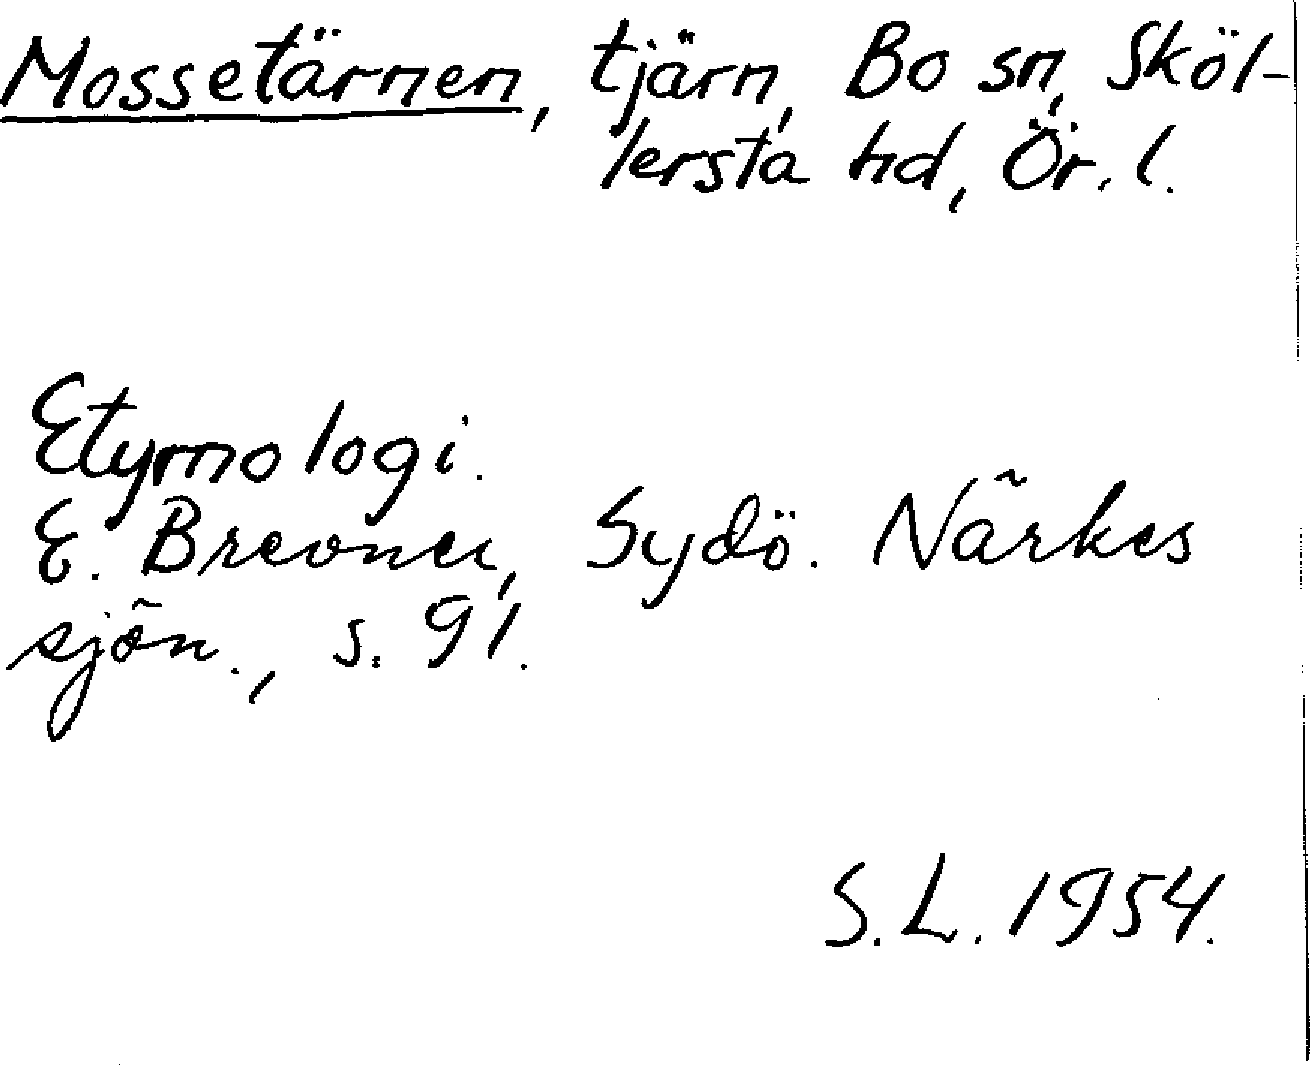 Mossetärnen, tjärn, Bo sn, Sköl-
lersta hd, Ör. l.
Etymologi.
E. Brevner, Sydö. Närkes
sjön., s. 91.
S.L. 1954.